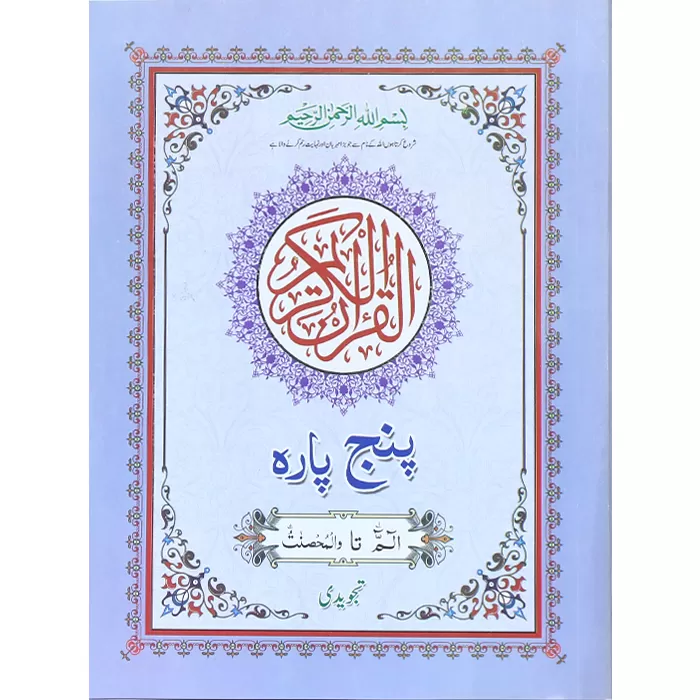 بِسْمِ اللهِ الرَّحْمٰنِ الرَّحِيْمِ
شروع کرتا ہوں اللہ کے نام سے جو بڑا مہربان اور نہایت رحم کرنے والا ہے
القرآن الكريم
پنج پارہ
الٓمّٓ تا والمُحصنٰتُ
تجویدی